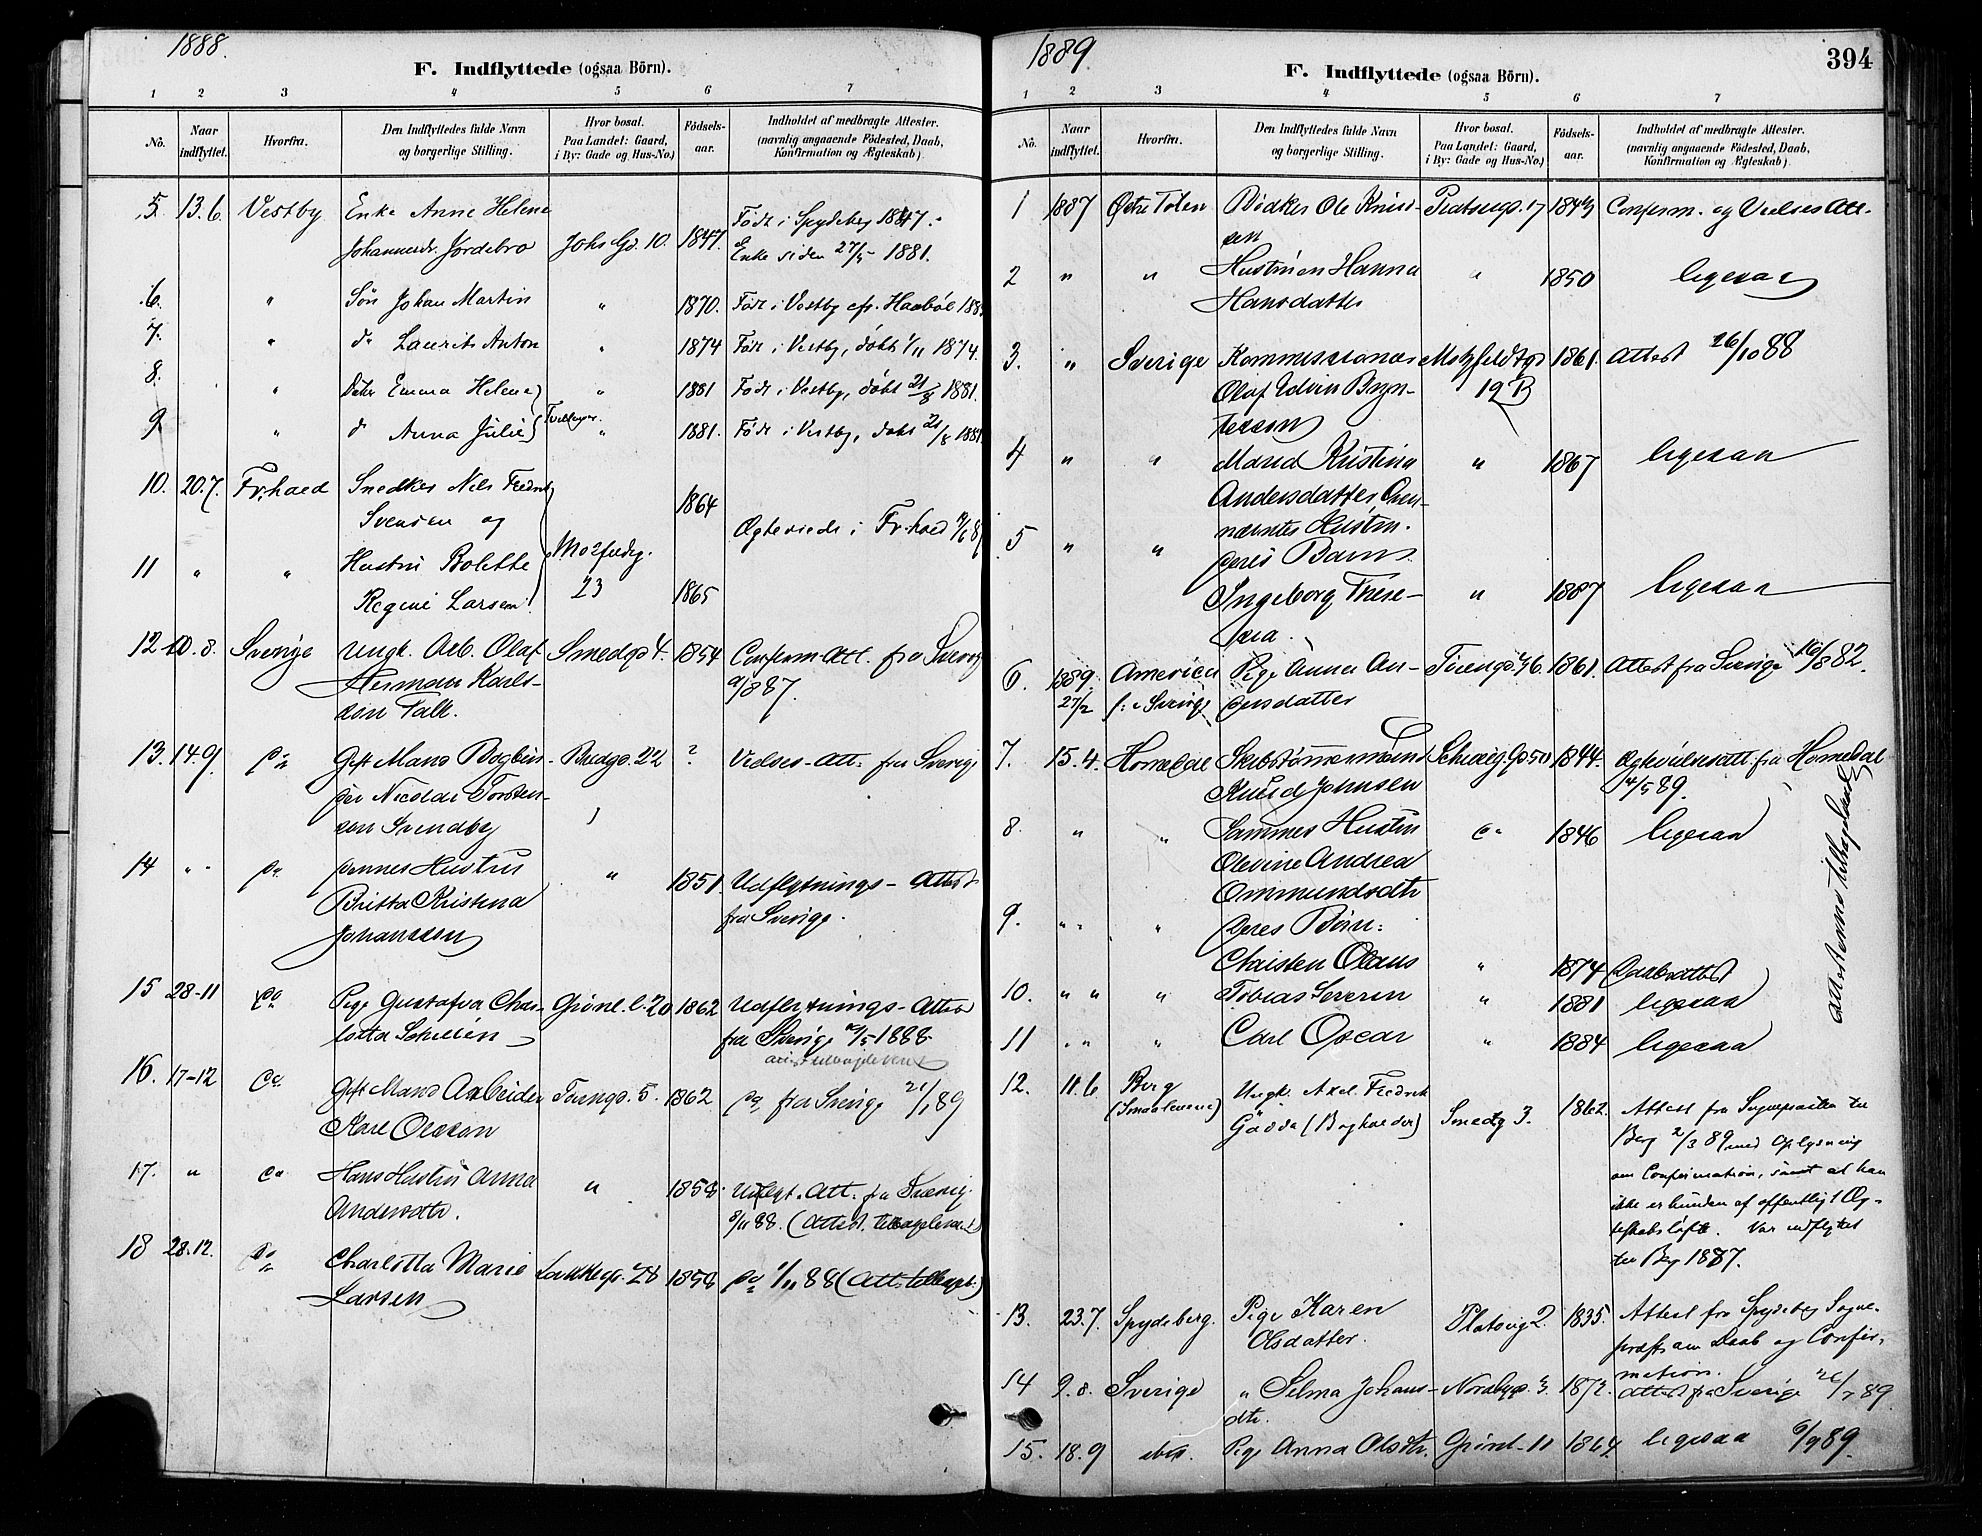 1888.
F. Indflyttede (ogsaa Börn).
1 2 3 4 5 6 7
No. Naar indflyttet. Hvorfra. Den Indflyttedes fulde Navn og borgerlige Stilling. Hvor bosat. Paa Landet: Gaard, i By: Gade og Hus-No.) Födsels-aar. Indholdet af medbragte Attester. (navnlig angaaende Födested, Daab, Konfirmation og Ægteskab).
5. 13.6. Vestby Enke Anne Helene Født i Spydeberg 1847.
Johannesdr. Jordebro Johs Gd. 10. 1847. Enke siden 27/5 1881.
6. " Søn Johan Martin " 1870. Født i Vestby
7. " do Laurits Anton " 1874 Født i Vestby, døbt 1/11 1874.
8. " Datter Emma Helene " 1881 Født i Vestby, døbt 21/8 1881.
9 " do Anna Julie Tvillinger " 1881. Født i Vestby, døbt 21/8 1881
10. 20.7. Fr.hald Snedker Nils Fredrik 1864
Svensen og Ægteviede i Fr.hald
11 " " Hustru Bolette
Regine Larsen. 23 1865
12 10.8. Sverige Ungk. Arb. Olaf Smedgd 4. 1854 Conferm. Att. fra Sverig
Herman Karls- 9/8 87.
son Falk.
13. 14.9. do Gift Mand Bogbin- Bredgd. 22 ? Vielses-Att. fra Sverig
der Nicolai Torsten-
son Svendby
14 " do dennes Hustru " 1851. Udflytnings-Attest
Britta Kristina fra Sverige.
Johanssen
15 28-11 do Pige Gustafva Char- Grønl. l. 20 1862 Udflytnings-Attest
lotta fra Sverige 1888
16. 17-12 do Gift Mand Arbeider Tomtegd. 5. 1862 do fra Sverige 21/1 89
Karl Olsson
17. " do Hans Hustru Anna " 1858. Udflyt. Att. fra Sverig.
Andersdtr. 8/11 88. (Attest. tilbagelevert)
18 28.12. do Charlotta Marie Lakkegd. 28 1858 do 1/11 88 (Att. tilbagel.)
Larsen
1889
394
F. Indflyttede (ogsaa Börn).
1 2 3 4 5 6 7
No. Naar indflyttet. Hvorfra. Den Indflyttedes fulde Navn og borgerlige Stilling. Hvor bosat. Paa Landet: Gaard, i By: Gade og Hus-No.) Födsels-aar. Indholdet af medbragte Attester. (navnlig angaaende Födested, Daab, Konfirmation og Ægteskab).
1 1887 Østre Toten Bødker Ole Knud- 17 Conferm. og Vielses Att-
sen
2 " " Hustruen Hanna " 1850 ligesaa
Hansdatter
3. " Sverige Kommissionær Motzfeldtgd 1861. Attest 26/10 88
Olaf Edvin Byn- 19 B
tesson
4 " " Maria Kristina " 1867 ligesaa
Andersdatter, Oven-
nævntes Hustru.
5 " " deres Barn
Ingeborg There- " 1887 ligesaa
sia.
6. 1889. America Pige Anna An- 46. 1861. Attest fra Sverige 16/8 82.
27/2 f: i Sverige dersdatter
7. 15.4. Homedal Skibstømmermand Schweig. Gd 50 1844. Ægtevielsesatt. fra Homedal
Knud Johnsen 14/5 89.
8. " " Sammes Hustru do 1846 ligesaa
Olevine Andrea
Ommundsdtr
9. " " deres Børn:
Christen Olaus " 1874 Daabsattest
10. " " Tobias Severin " 1881 ligesaa
11 " " Carl Oscar " 1884 ligesaa
Attesterne tilbageleveret
12. 11.6 Berg Ungk. Axel Fredrik
(Smaalenene) Gädda (Bogholder) Smedg 3. 1862. Attest fra Sognepresten til
Berg 2/3 89 med Oplysning
om Confirmation, samt at han
ikke er bunden af offentligt Æg-
teskabsløfte. Var indflyttet
til Berg 1887.
13. 23.7. Spydeberg. Pige Karen Platousg 2. 1835. Attest fra Spydeberg Sogne-
Olsdatter. præst om Daab og Confir-
mation.
14 9.8. Sverige " Selma Johans- Norbygd. 3. 1872. Attest fra Sverige 26/7 89
dtr.
15. 18.9 Pige Anna Olsdtr. Grønl. 11 1864 ligesaa 6/9 89.